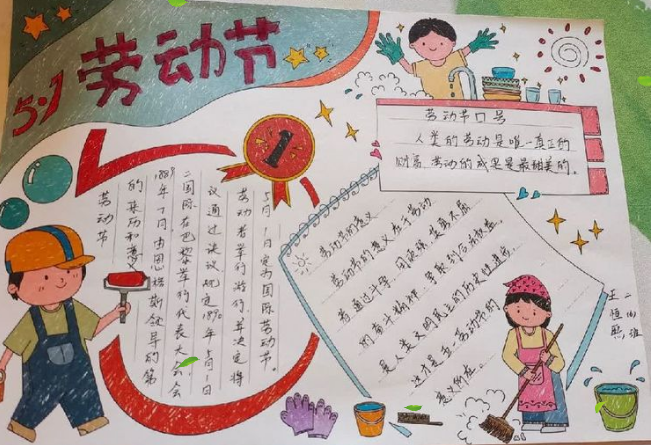 5·1 劳动节
1
劳动节口号
人类的劳动是唯一真正的
财富,劳动的成果是最甜美的。
劳动节
的来历和意义
1889年7月,由恩格斯领导的第
二国际在巴黎举行代表大会会
议通过决议规定1890年5月1日
劳动者举行游行,并决定将
5月1日定为国际劳动节。
劳动节的意义
劳动节的意义在于劳动
者通过斗争,用顽强、英勇不屈
的奋斗精神,争取到合法权益。
是人类文明民主的历史性进步,
这才是五一劳动节的
意义所在。
班
王恒熙